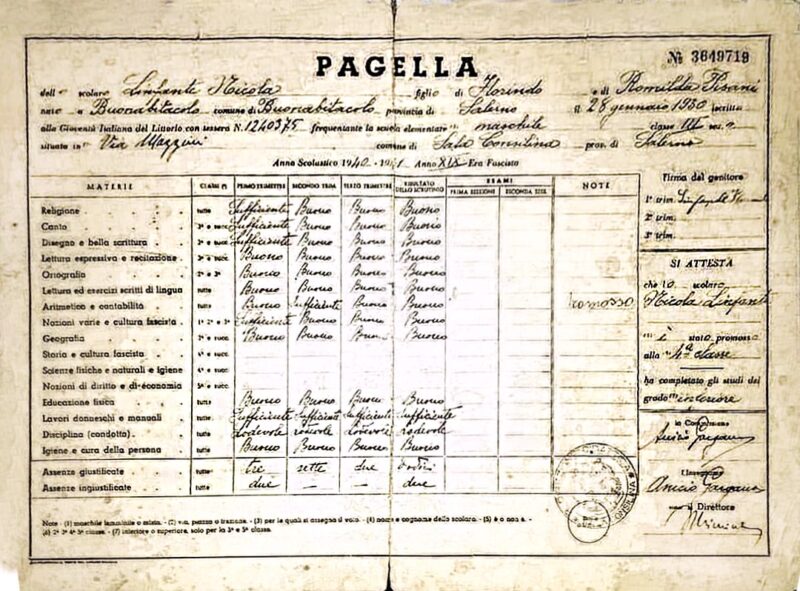 PAGELLA
№ 3649719
dell o scolaro Linfante Nicola figlio di Florindo e di Romilda Pisani
nato a Buonabitacolo comune di Buonabitacolo provincia di Salerno il 28 gennaio 1930 iscritto
alla Gioventù Italiana del Littorio con tessera N. 1240375 frequentante la scuola elementare maschile classe III sez. a
situata in Via Mazzini comune di Sala Consilina prov. di Salerno
Anno Scolastico 1940 - 1941 Anno XIX Era Fascista
MATERIE CLASSI (*) PRIMO TRIMESTRE SECONDO TRIM. TERZO TRIMESTRE RISULTATO DELLO SCRUTINIO ESAMI PRIMA SESSIONE SECONDA SESS. NOTE
Religione tutte Sufficiente Buono Buono Buono
Canto 2ª e succ. Sufficiente Buono Buono Buono
Disegno e bella scrittura 2ª e succ. Sufficiente Buono Buono Buono
Lettura espressiva e recitazione 2ª e succ. Buono Buono Buono Buono
Ortografia 2ª e 3ª Buono Buono Buono Buono
Lettura ed esercizi scritti di lingua tutte Buono Buono Buono Buono
Aritmetica e contabilità tutte Buono Sufficiente Buono Buono Promosso
Nozioni varie e cultura fascista 1ª 2ª e 3ª Sufficiente Buono Buono Buono
Geografia 3ª e succ. Buono Buono Buono Buono
Storia e cultura fascista 4ª e succ.
Scienze fisiche e naturali e igiene 4ª e succ.
Nozioni di diritto e di economia 5ª e succ.
Educazione fisica tutte Buono Buono Buono Buono
Lavori donneschi e manuali tutte Sufficiente Sufficiente Sufficiente Sufficiente
Disciplina (condotta) tutte Lodevole Lodevole Lodevole Lodevole
Igiene e cura della persona tutte Buono Buono Buono Buono
Assenze giustificate tutte tre sette due dodici
Assenze ingiustificate tutte due — — due
Firma del genitore
1° trim. Linfante
2° trim.
3° trim.
SI ATTESTA
che lo scolaro
Nicola Linfante
è stato promosso
alla 4ª classe
ha completato gli studi del
grado inferiore
la Commissione
l'Insegnante
il Direttore
Note - (1) maschile femminile o mista. - (2) via, piazza o frazione. - (3) per le quali si assegna il voto. - (4) nome e cognome dello scolaro. - (5) è o non è. -
(6) 2ª 3ª 4ª 5ª classe. - (7) inferiore o superiore, solo per la 3ª e 5ª classe.